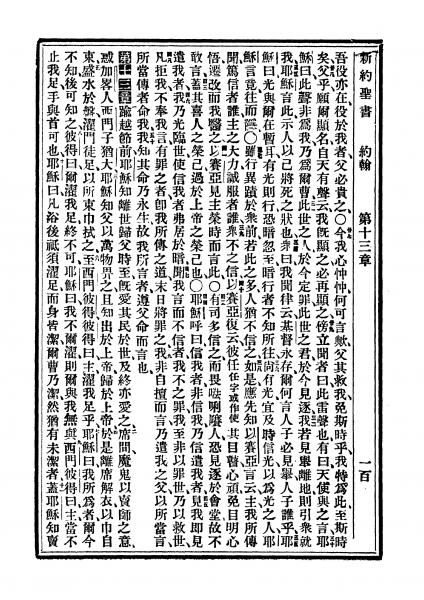 新約聖書　約翰　第十三章　一百
吾役亦在役於我者父必貴之○今我心忡忡何可言歟父其救我免斯時乎我特為此至斯時
矣父乎願爾顯名自天有聲云我既顯之必再顯之傍立聞者曰此雷聲也有曰天使與之言耶
穌曰此聲非為我乃為爾曹此世之人於今定罪此世之君於今見逐我若見舉離地則引衆就
我耶穌言此示人以己將死之狀也衆曰我聞律云基督永存爾何言人子必見舉人子誰乎耶
穌曰光與爾在暫耳有光則行恐暗忽至暗行者不知所往尚有光宜及時信光以為光之人耶
穌言竟往而隱○雖行異蹟於衆前若此之多人猶不信之如是應先知以賽亞言主我所傳
聞篤信者誰主之大力誠服者誰衆不之信以賽亞復云彼任在字或作使其目瞽心頑免目明心
悟遷改而我醫之以賽亞見主榮時而言此○有司多信之而畏唎人恐見逐於會堂故不
敢言蓋其喜人之榮己過於上帝之榮己也○耶穌呼曰信我者非信我乃信遣我者見我即見
遣我者我乃光臨世使信我者弗居於暗聞我言而不信者我不之罪我至非以罪世乃以救世
凡拒我不奉我言有罪之者即我所傳之道末日將罪之我非自擅而言乃遣我之父以所當言
所當傳者命我我知其命乃永生故我所言者遵父命而言也
第十三章踰越節前耶穌知離世歸父時至既愛其民於世及終亦愛之席間魔鬼以賣師之意
惑加畧人西門子猶大耶穌知父以萬物畀之且知出於上帝歸於上帝於是離席解衣以巾自
束盛水於盤濯門徒足以所束巾拭之至西門彼得彼得曰主濯我足乎耶穌曰我所為者爾今
不知後可知之彼得曰爾濯我足終不可耶穌曰我不爾濯則爾與我無與西門彼得曰主當不
止我足手與首可也耶穌曰凡浴後祇須濯足而身皆潔爾曹乃潔然猶有未潔者蓋耶穌知賣